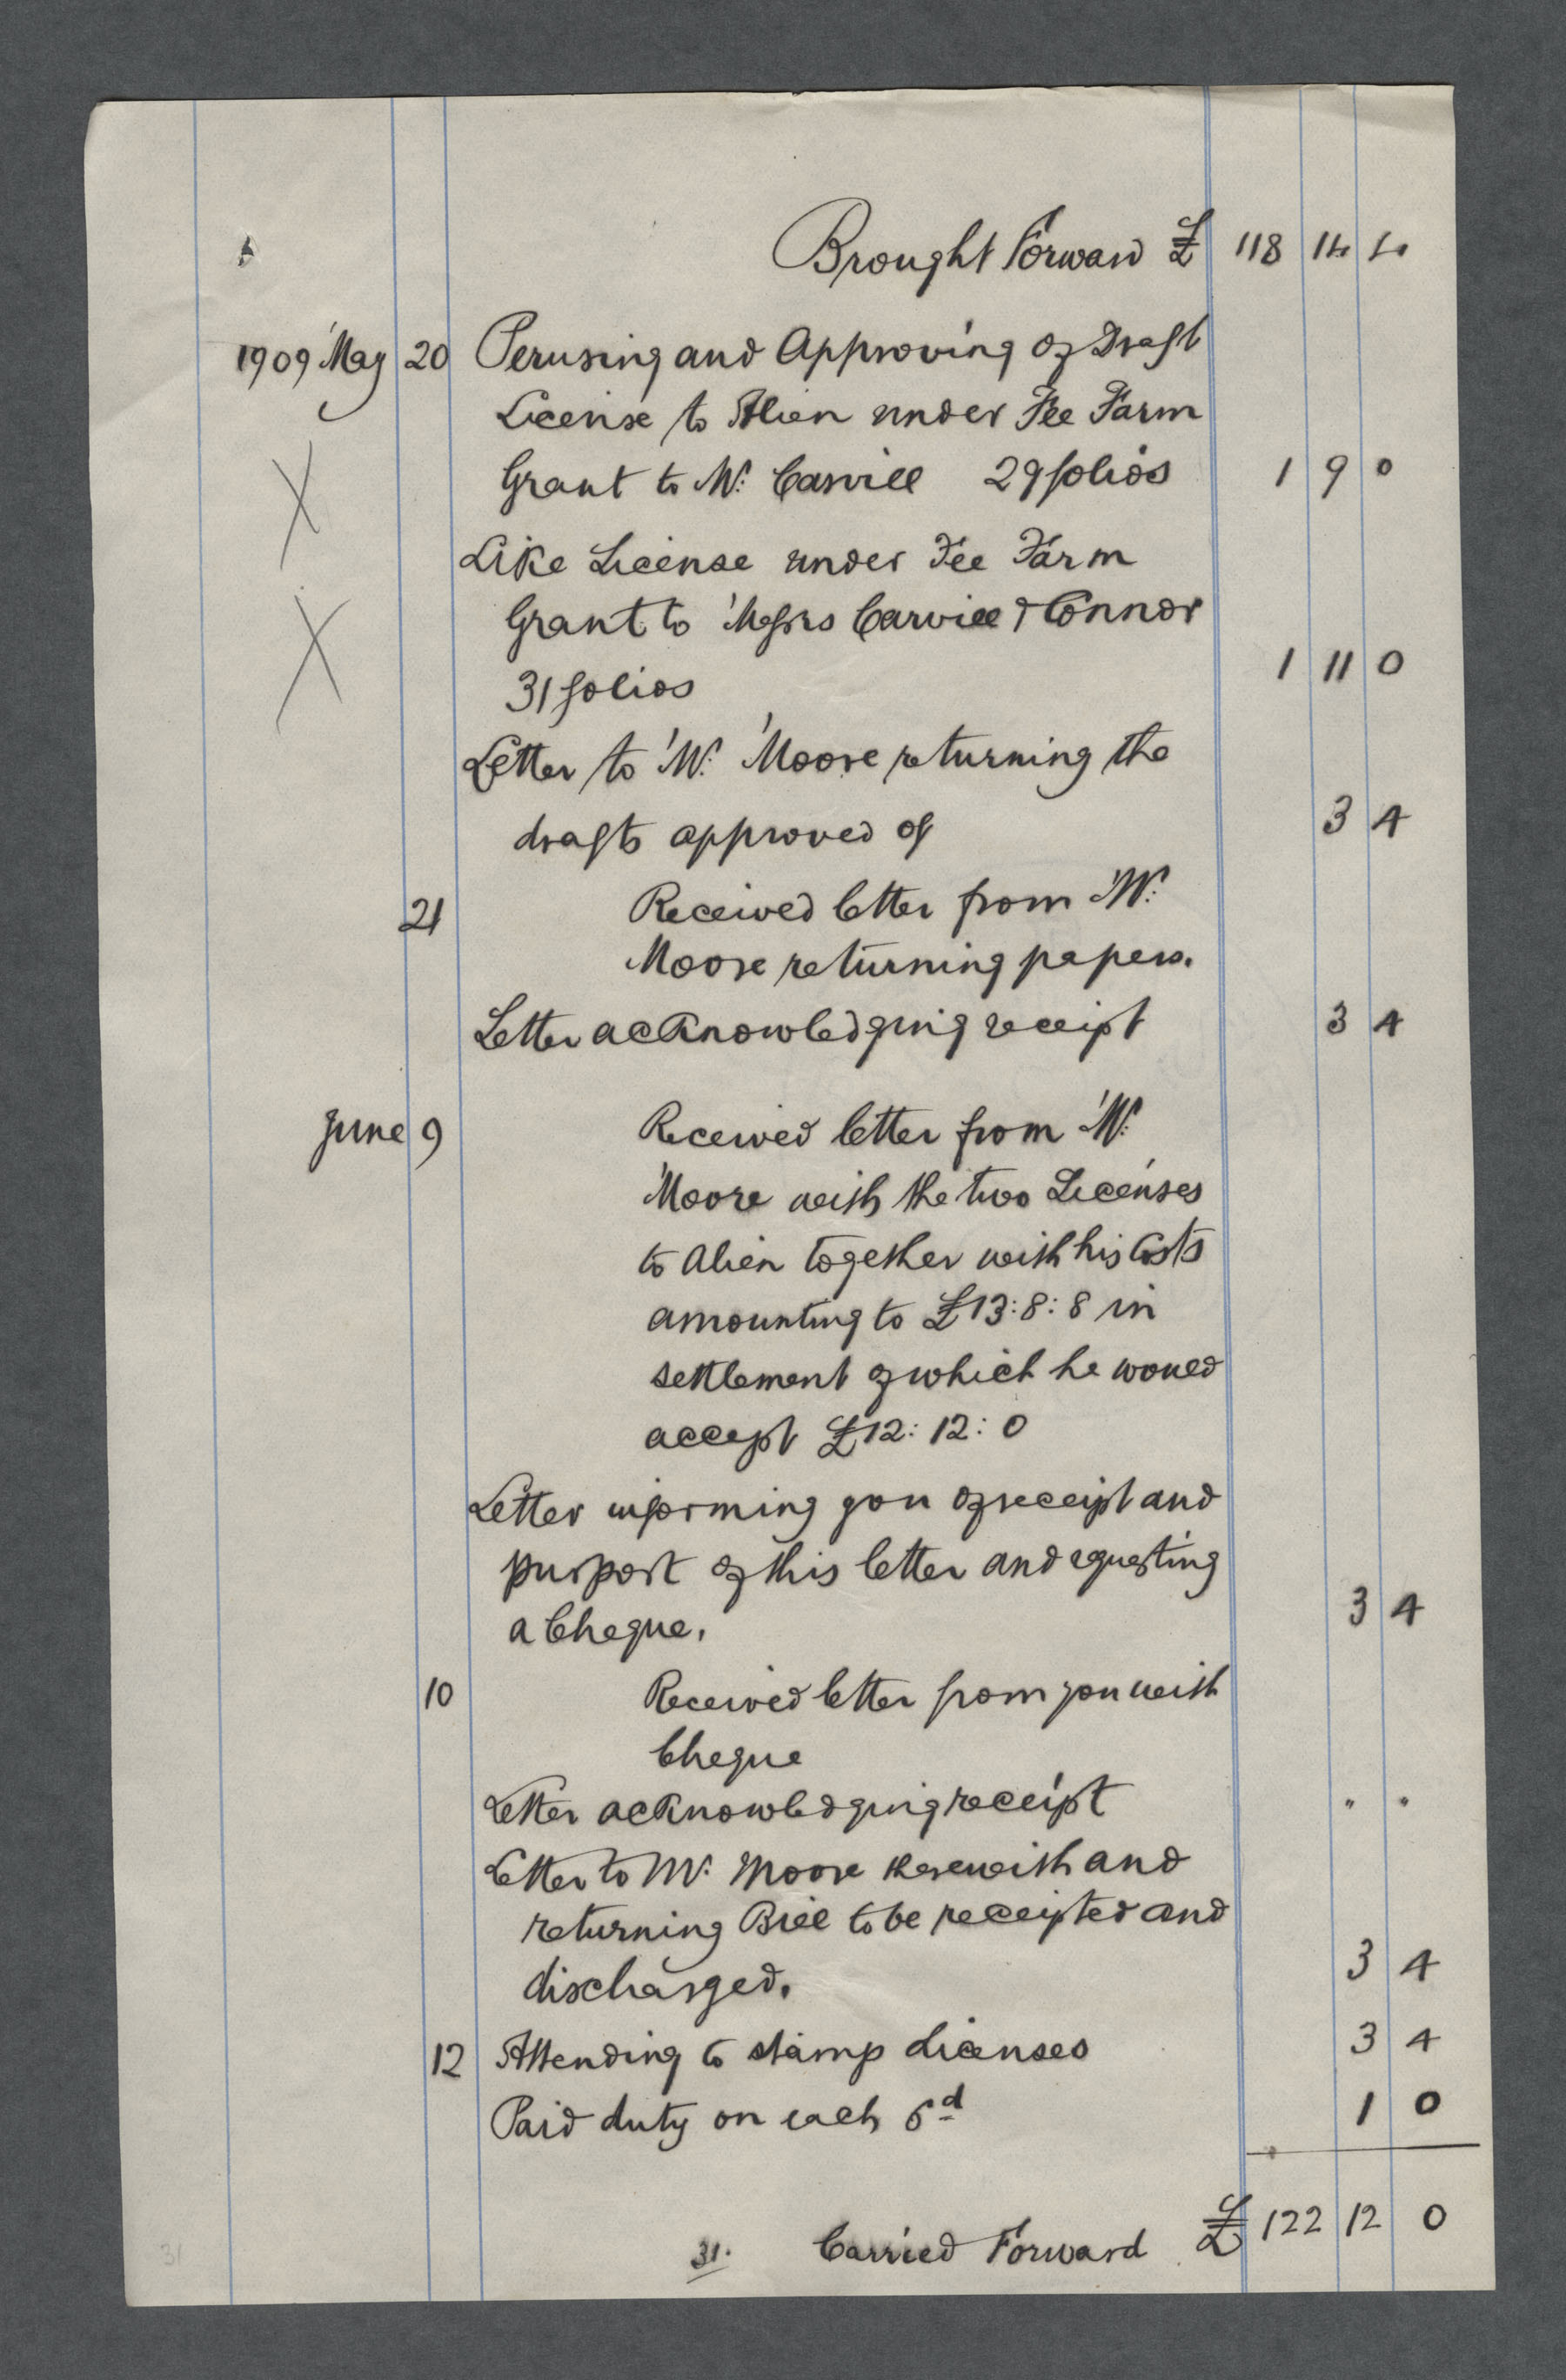 Brought Forward £ 118 14 4
1909 May 20 Perusing and Approving of Draft
License to Alien under Fee Farm
Grant to Mr. Carvill 29 folios 1 9 0
Like License under Fee Farm
Grant to Messrs Carvill & Connor
31 folios 1 11 0
Letter to Mr. Moore returning the
drafts approved of 3 4
21 Received letter from Mr.
Moore returning papers.
Letter acknowledging receipt 3 4
June 9 Received letter from Mr.
Moore with the two Licenses
to Alien together with his Costs
amounting to £13:8:8 in
settlement of which he would
accept £12:12:0
Letter informing you of receipt and
purport of this letter and requesting
a Cheque. 3 4
10 Received letter from you with
Cheque
Letter acknowledging receipt " "
Letter to Mr. Moore therewith and
returning Bill to be receipted and
discharged. 3 4
12 Attending to stamp Licenses 3 4
Paid duty on each 6d 1 0
31. Carried Forward £ 122 12 0
31